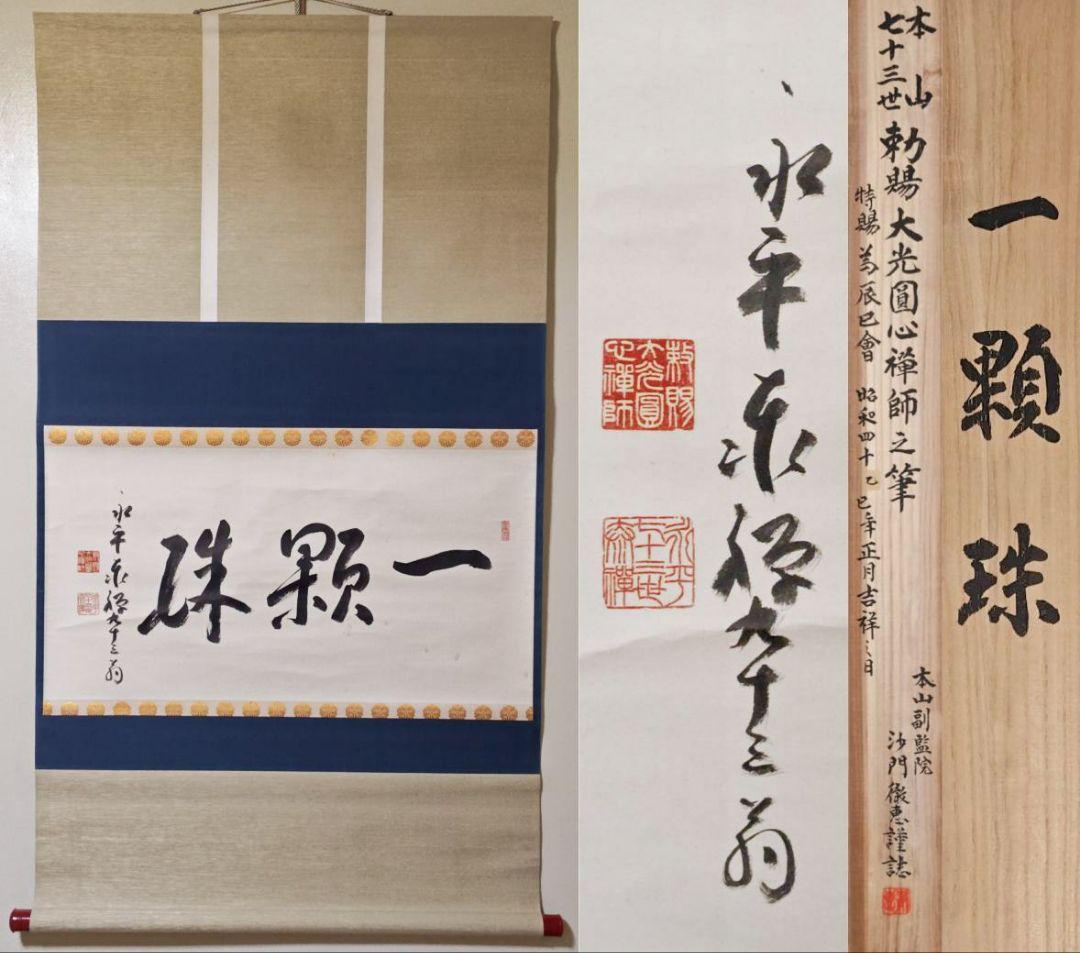 一顆珠
永平泰禅九十三翁
永平泰禅九十三翁
敕賜
大光圓
心禪師
永平
七十三世
泰禪
一顆珠
本山
七十三世 勅賜大光圓心禪師之筆
特賜 為辰巳會 昭和四十乙巳年正月吉祥之日
本山副監院
沙門徹恵謹誌